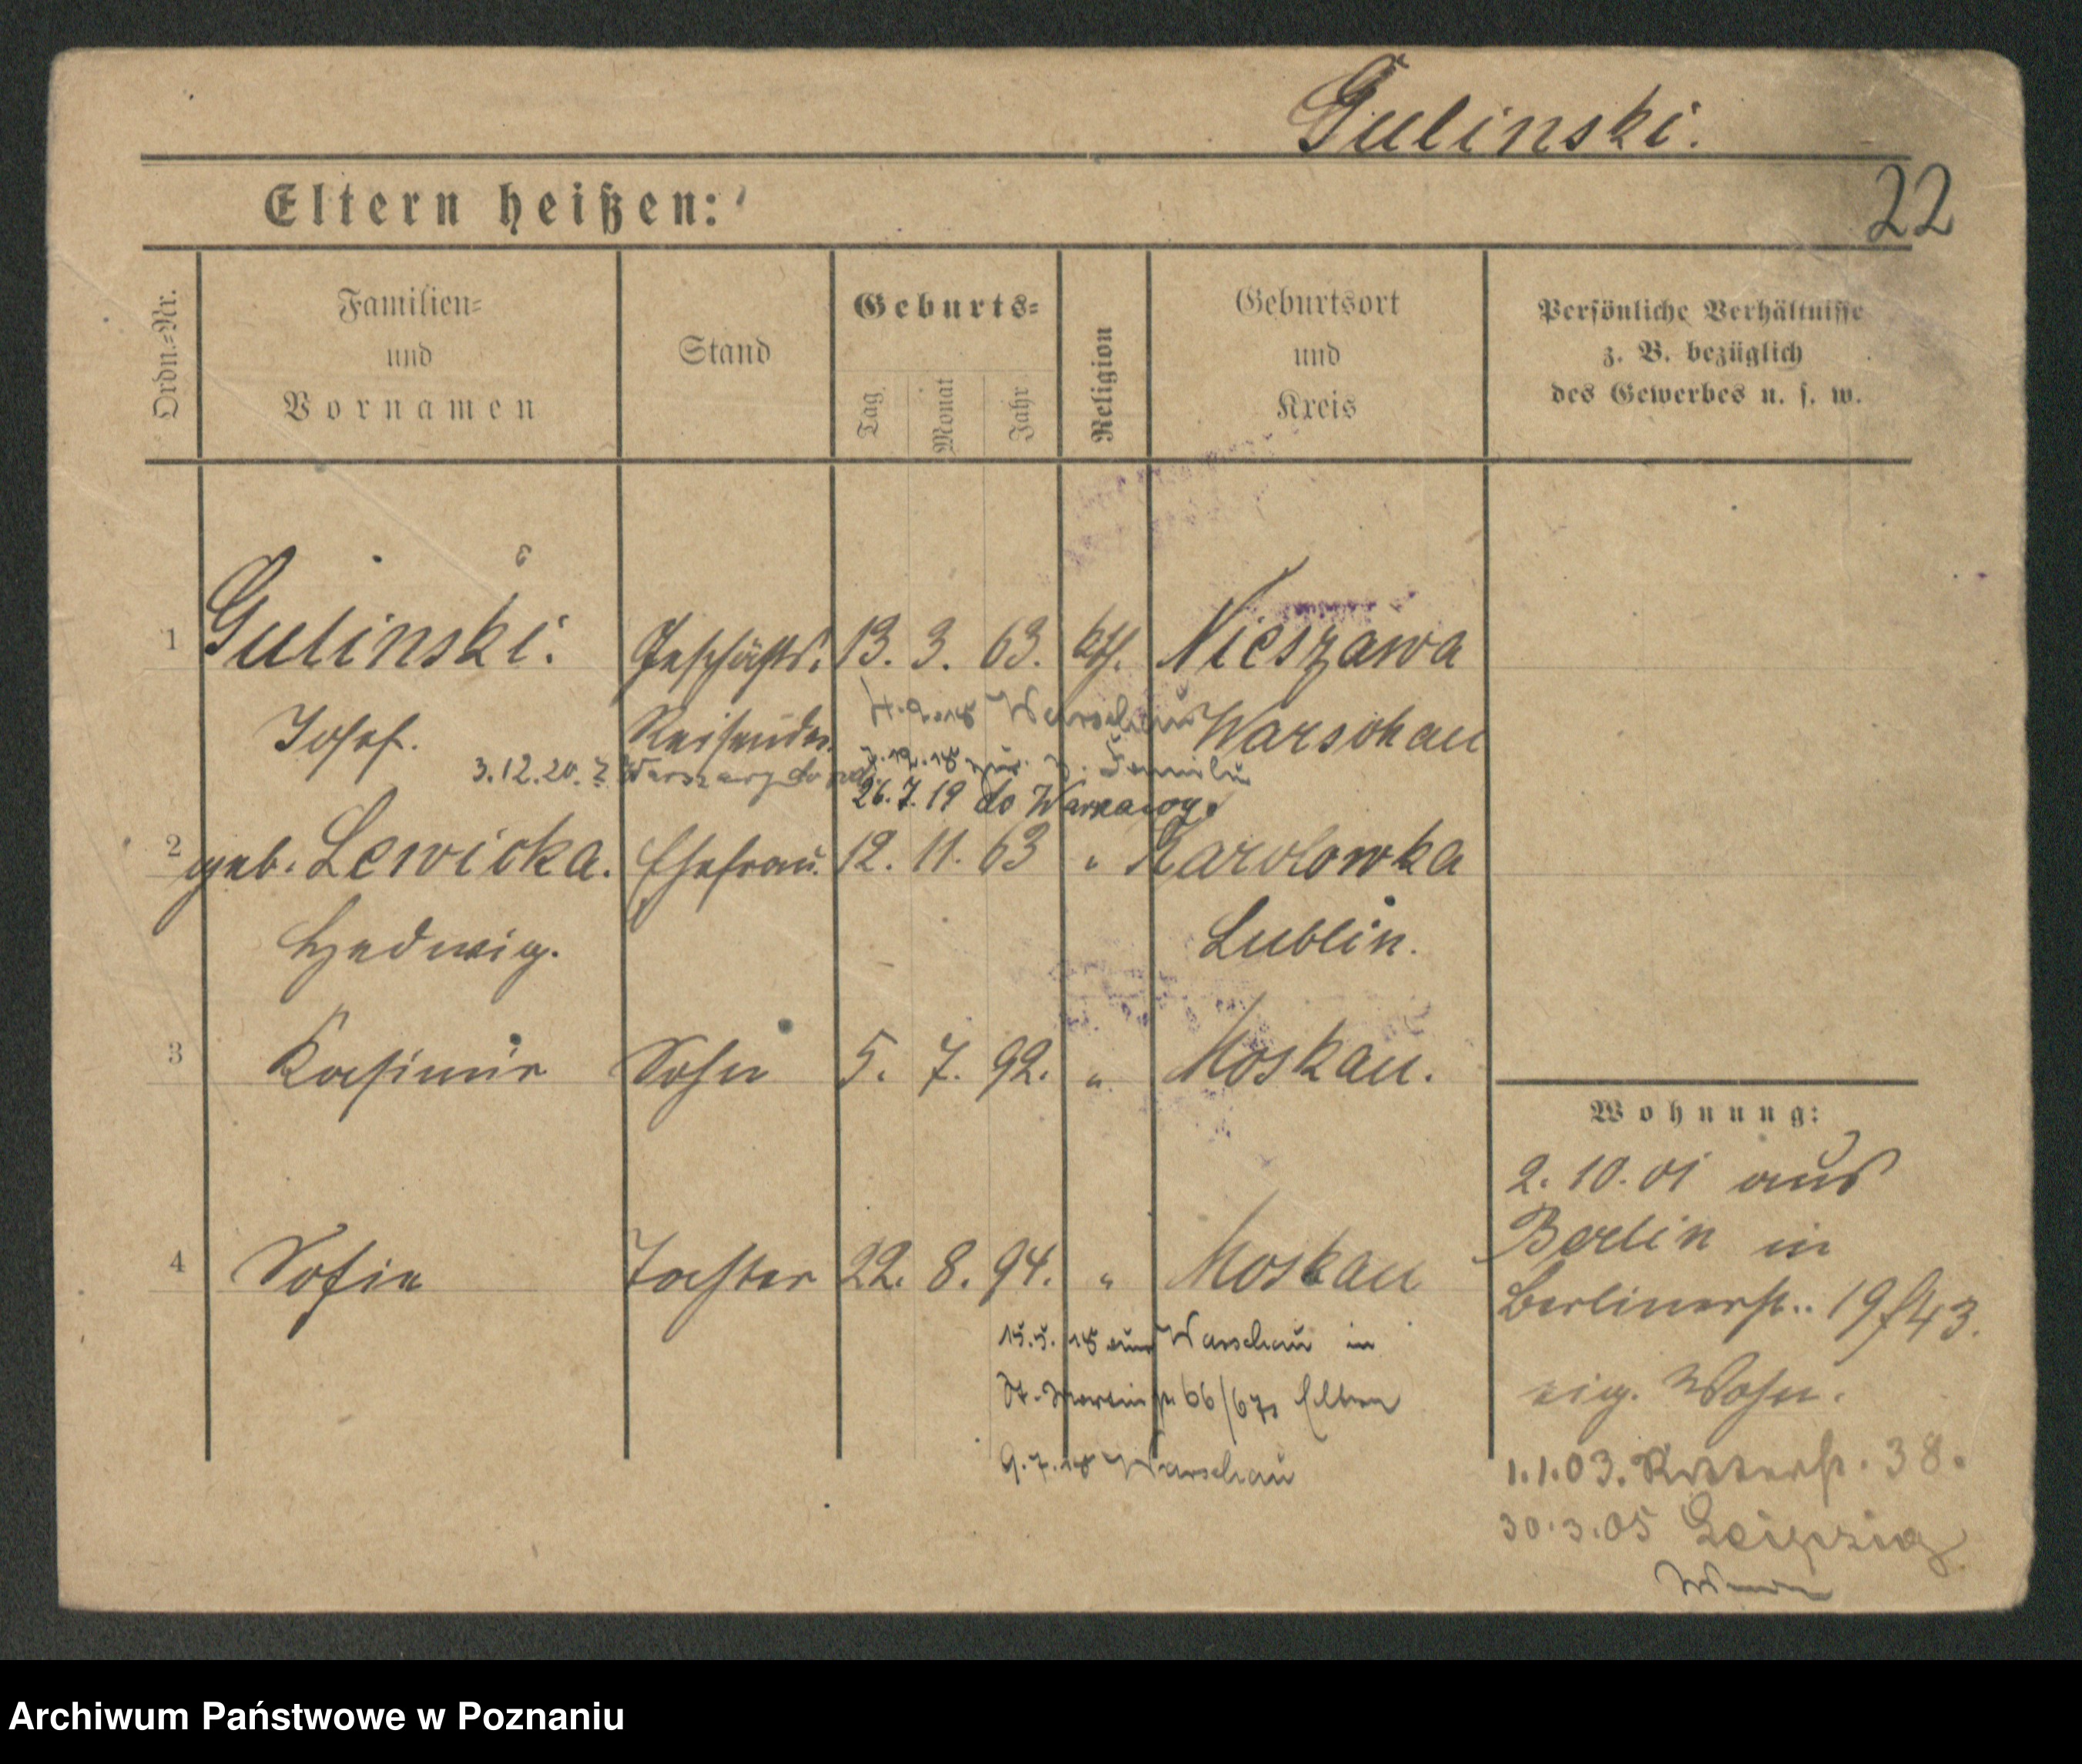 Gulinski.
Eltern heißen:
22
Ordn.=Nr.
Familien=
und
Vornamen
Stand
Geburts=
Tag
Monat
Jahr
Religion
Geburtsort
und
Kreis
Persönliche Verhältnisse
z. B. bezüglich
des Gewerbes u. s. w.
1 Gulinski. Geschäfts. 13. 3. 63. kth. Nieszawa
Josef. Reisender. Warschau
4.9.18 Warschau
3.12.20. z Warszawy do
zur. z. Familie
26.7.19 do Warszawy
2 geb. Lewicka. Ehefrau. 12. 11. 63 " Karolowka
Hedwig. Lublin.
3 Kasimir Sohn 5. 7. 92. " Moskau.
4 Sofie Tochter 22. 8. 94. " Moskau
15.5.18 aus Warschau in
St. Martinstr. 66/67 Eltern
9.7.18 Warschau
Wohnung:
2.10.01 aus
Berlin in
Berlinerstr. 19/43.
eig. Wohn.
1.1.03. Ritterstr. 38.
30.3.05 Leipzig
Archiwum Państwowe w Poznaniu